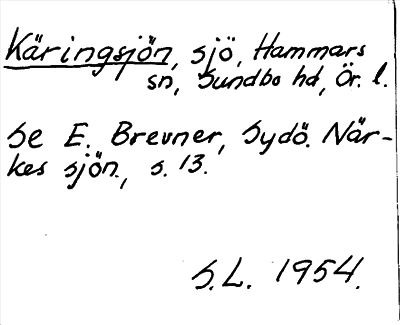 Käringsjön, sjö, Hammars
sn, Sundbo hd, Ör. l.
Se E. Brevner, Sydö. När-
kes sjön., s. 13.
S.L. 1954.